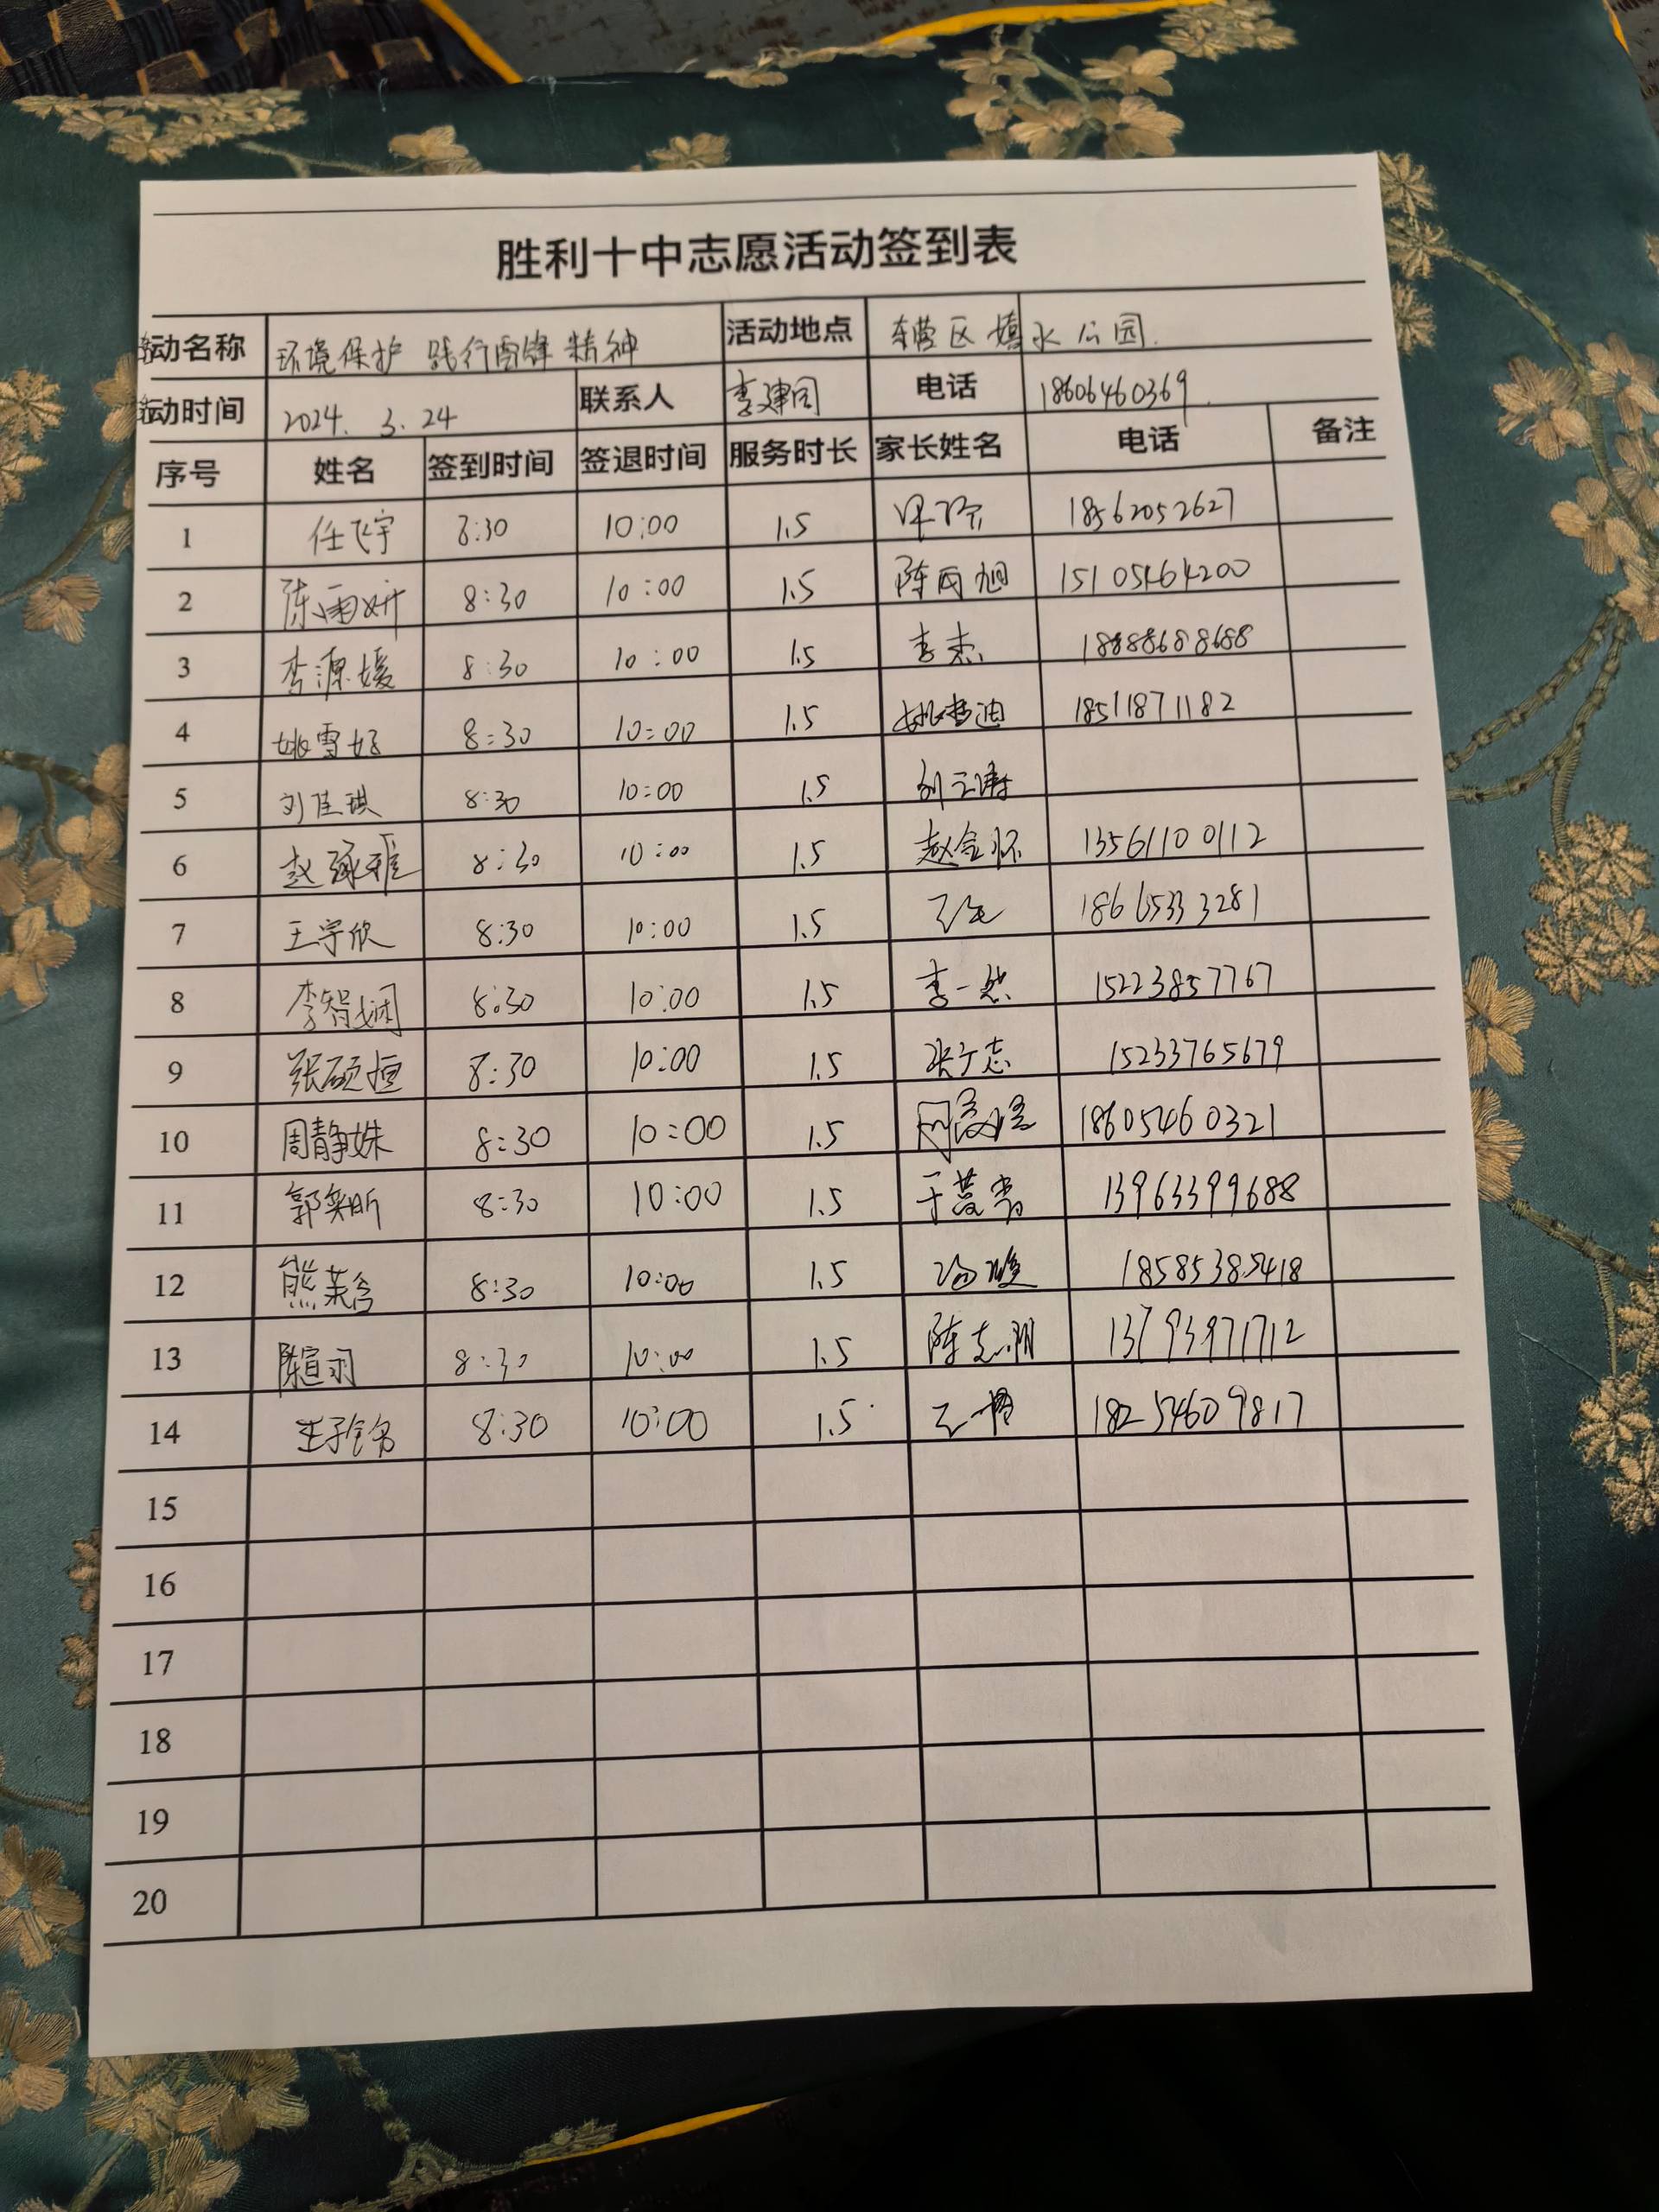 胜利十中志愿活动签到表
活动名称 环境保护 践行雷锋精神 活动地点 东营区 水公园
活动时间 2024. 3. 24 联系人 李建国 电话 18606460369
序号 姓名 签到时间 签退时间 服务时长 家长姓名 电话 备注
1 任飞宇 8:30 10:00 1.5 18562052627
2 陈雨妍 8:30 10:00 1.5 陈丙旭 15105464200
3 李源媛 8:30 10:00 1.5 李杰 18888688688
4 姚雪好 8:30 10:00 1.5 18511871182
5 刘佳琪 8:30 10:00 1.5 刘云涛
6 赵 雅 8:30 10:00 1.5 赵金怀 13561100112
7 王宇欣 8:30 10:00 1.5 18665333281
8 李智娴 8:30 10:00 1.5 李一然 15223857767
9 张硕桓 8:30 10:00 1.5 张广志 15233765679
10 周静姝 8:30 10:00 1.5 18605460321
11 郭奕昕 8:30 10:00 1.5 13963399688
12 熊莱含 8:30 10:00 1.5 18585385418
13 陈宣羽 8:30 10:00 1.5 陈志刚 13793971712
14 8:30 10:00 1.5 18254609817
15
16
17
18
19
20